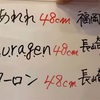 あわれ 48cm 福岡
uragen 48cm 長崎
ーロン 48cm 長崎